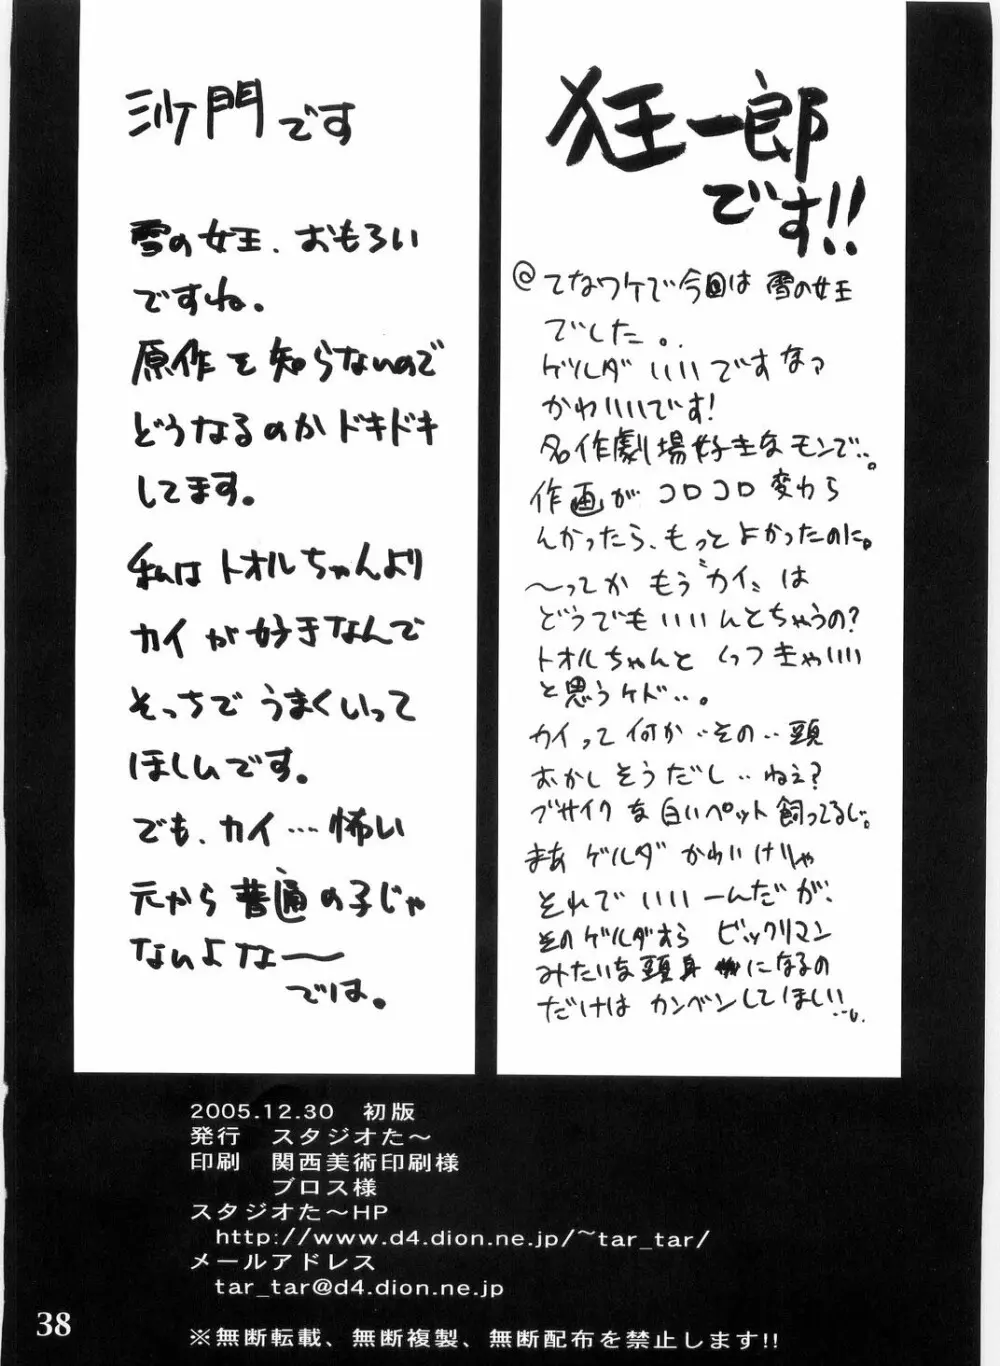 狂一郎
です!!
@てなワケで今回は 雪の女王
でした。
ゲルダ いいですなァ
かわいいです!
名作劇場好きなモンで…。
作画がコロコロ変わら
んかったら、もっとよかったのに。
〜ってか もう“カイ”は
どうでもいいんとちゃうの?
トオルちゃんと くっつきゃいい
と思うケド…。
カイって何か…その…頭
おかしそうだし…ねぇ?
ブサイクな白いペット飼ってるし。
まあ ゲルダ かわいけりゃ
それでいいーんだが、
そのゲルダすら ビックリマン
みたいな頭身になるの
だけは カンベンしてほしい…。
沙門です
雪の女王、おもろい
ですね。
原作を知らないので
どうなるのかドキドキ
してます。
私はトオルちゃんより
カイが好きなんで
そっちでうまくいって
ほしいです。
でも、カイ…怖い
元から普通の子じゃ
ないよなー〜
では。
2005.12.30 初版
発行 スタジオた〜
印刷 関西美術印刷様
ブロス様
スタジオた〜HP
http://www.d4.dion.ne.jp/~tar_tar/
メールアドレス
tar_tar@d4.dion.ne.jp
38
※無断転載、無断複製、無断配布を禁止します!!